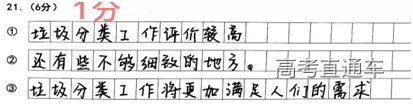 21.（6分） 1分
① 垃圾分类工作评价较高
② 还有些不够细致的地方。
高考直通车
③ 垃圾分类工作将更加满足人们的需求